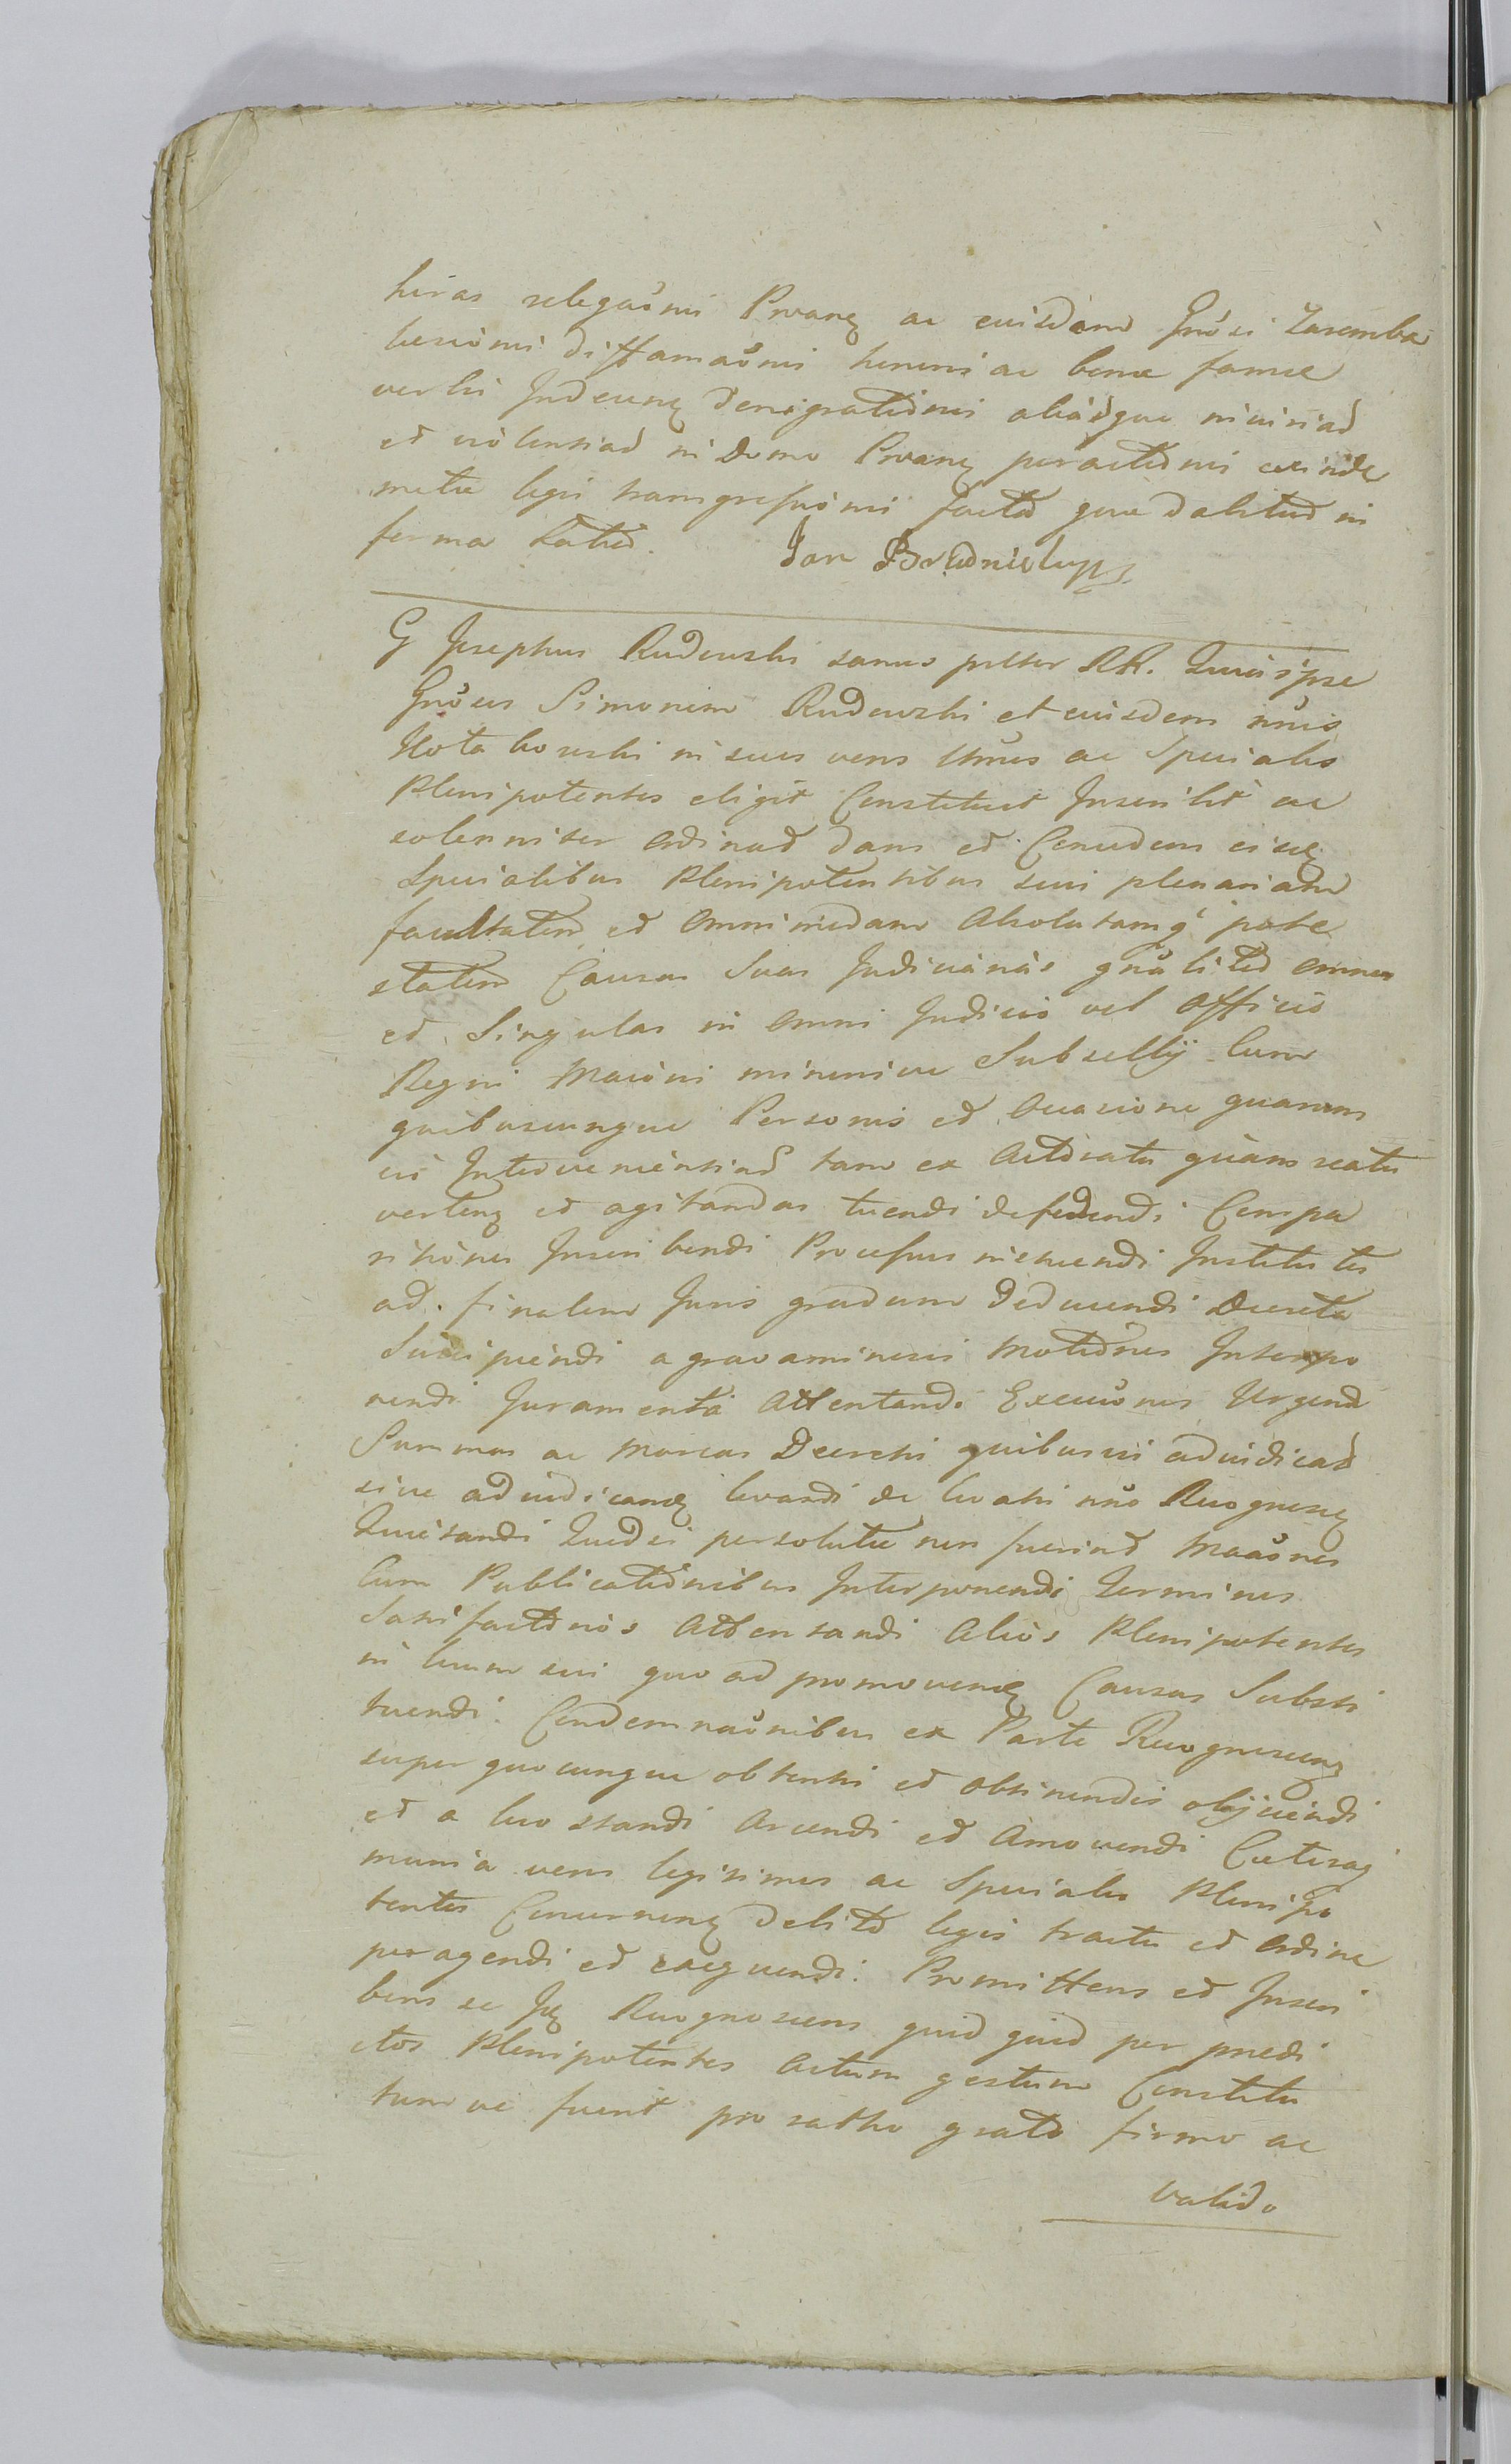 heras relegaoni Proang ac euisdem Gnosi Zaremba
lesiomi diffamaoni honoris ac bonae famae
verbis Indecung denigrationis aliasque iniuriad
et violentiad in domo Proang peractionis exinde
metu legis transgressionis facta quae dabitur in
forma latius. Jan Brudnickimp
G Josephus Rudowski sanus pltter RR. Quiaipse
Gnosus Simonem Rudowski et euisdem nnis
in suos veros ltmos ac Speciales
Plenipotentes eligit Constituit Inscribit ac
solenniter ordinat dans et Concedens eisd
Specialibus Plenipotentibus suis plenariam
facultatem et omnimodam Absolutamq pote
statem Causas Suas Judiciarias gnaliter omnes
et Singulas in omni Judicio vel Officio
Regni Maioris minorisve Subsellij Cum
quibuscunque Personis et Occasione quarum
vis Intervenientiad tam ex Actoratu quam reatu
verteng et agitandas tuendi defendendi Compa
ritiones Inscribendi Processus instruendi Institutos
ad finalem Juris gradum deducendi Decreta
Suscipiendi a gravaminosis Motiones Interpo
nendi Juramenta Attentandi Execuones Urgend
Summas ac Marcas Decretis quibusvis adiudicad
sive adiudicand levandi de levatis nno Recognoscg
Quietandi Quodsi persolutae non fuerint Maaones
Cum Publicationibus Interponendi Terminos
Satisfactionis Attentandi Alios Plenipotentes
in locum sui quo ad promovend Causas Substi
tuendi. Condemnaonibus ex Parte Recognosceng
super quocunque obtentis et obtinendis obijciendi
et a loco standi Arcendi et Amovendi Caeteraq
munia veros legitimos ac Speciales Plenipo
tentes Concerneng debito legis tractu et ordine
peragendi et exequendi. Promittens et Inscri
bens se Jg Recognoscens quid quid per praedi
ctos Plenipotentes Actum gestum Constitu
tumve fuerit pro ratho grato firmo ac
valido